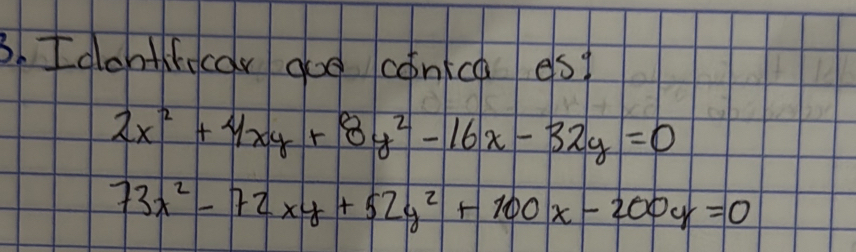 3. Identificar que cónica es:
2x² + 4xy + 8y² - 16x - 32y = 0
73x² - 72xy + 52y² + 100x - 200y = 0